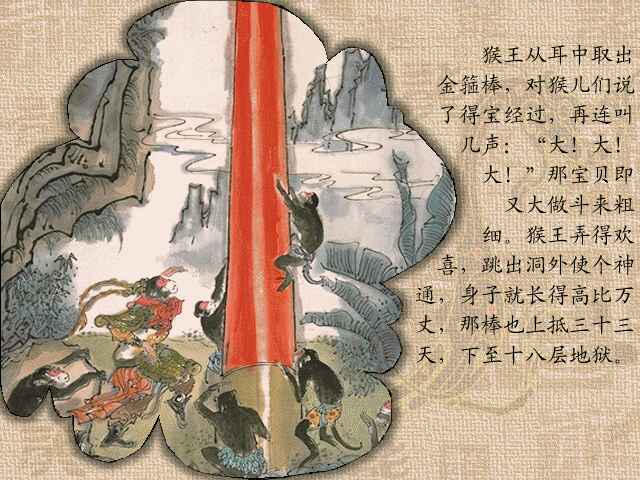 猴王从耳中取出
金箍棒，对猴儿们说
了得宝经过，再连叫
几声：“大！大！
大！”那宝贝即
又大做斗来粗
细。猴王弄得欢
喜，跳出洞外使个神
通，身子就长得高比万
丈，那棒也上抵三十三
天，下至十八层地狱。